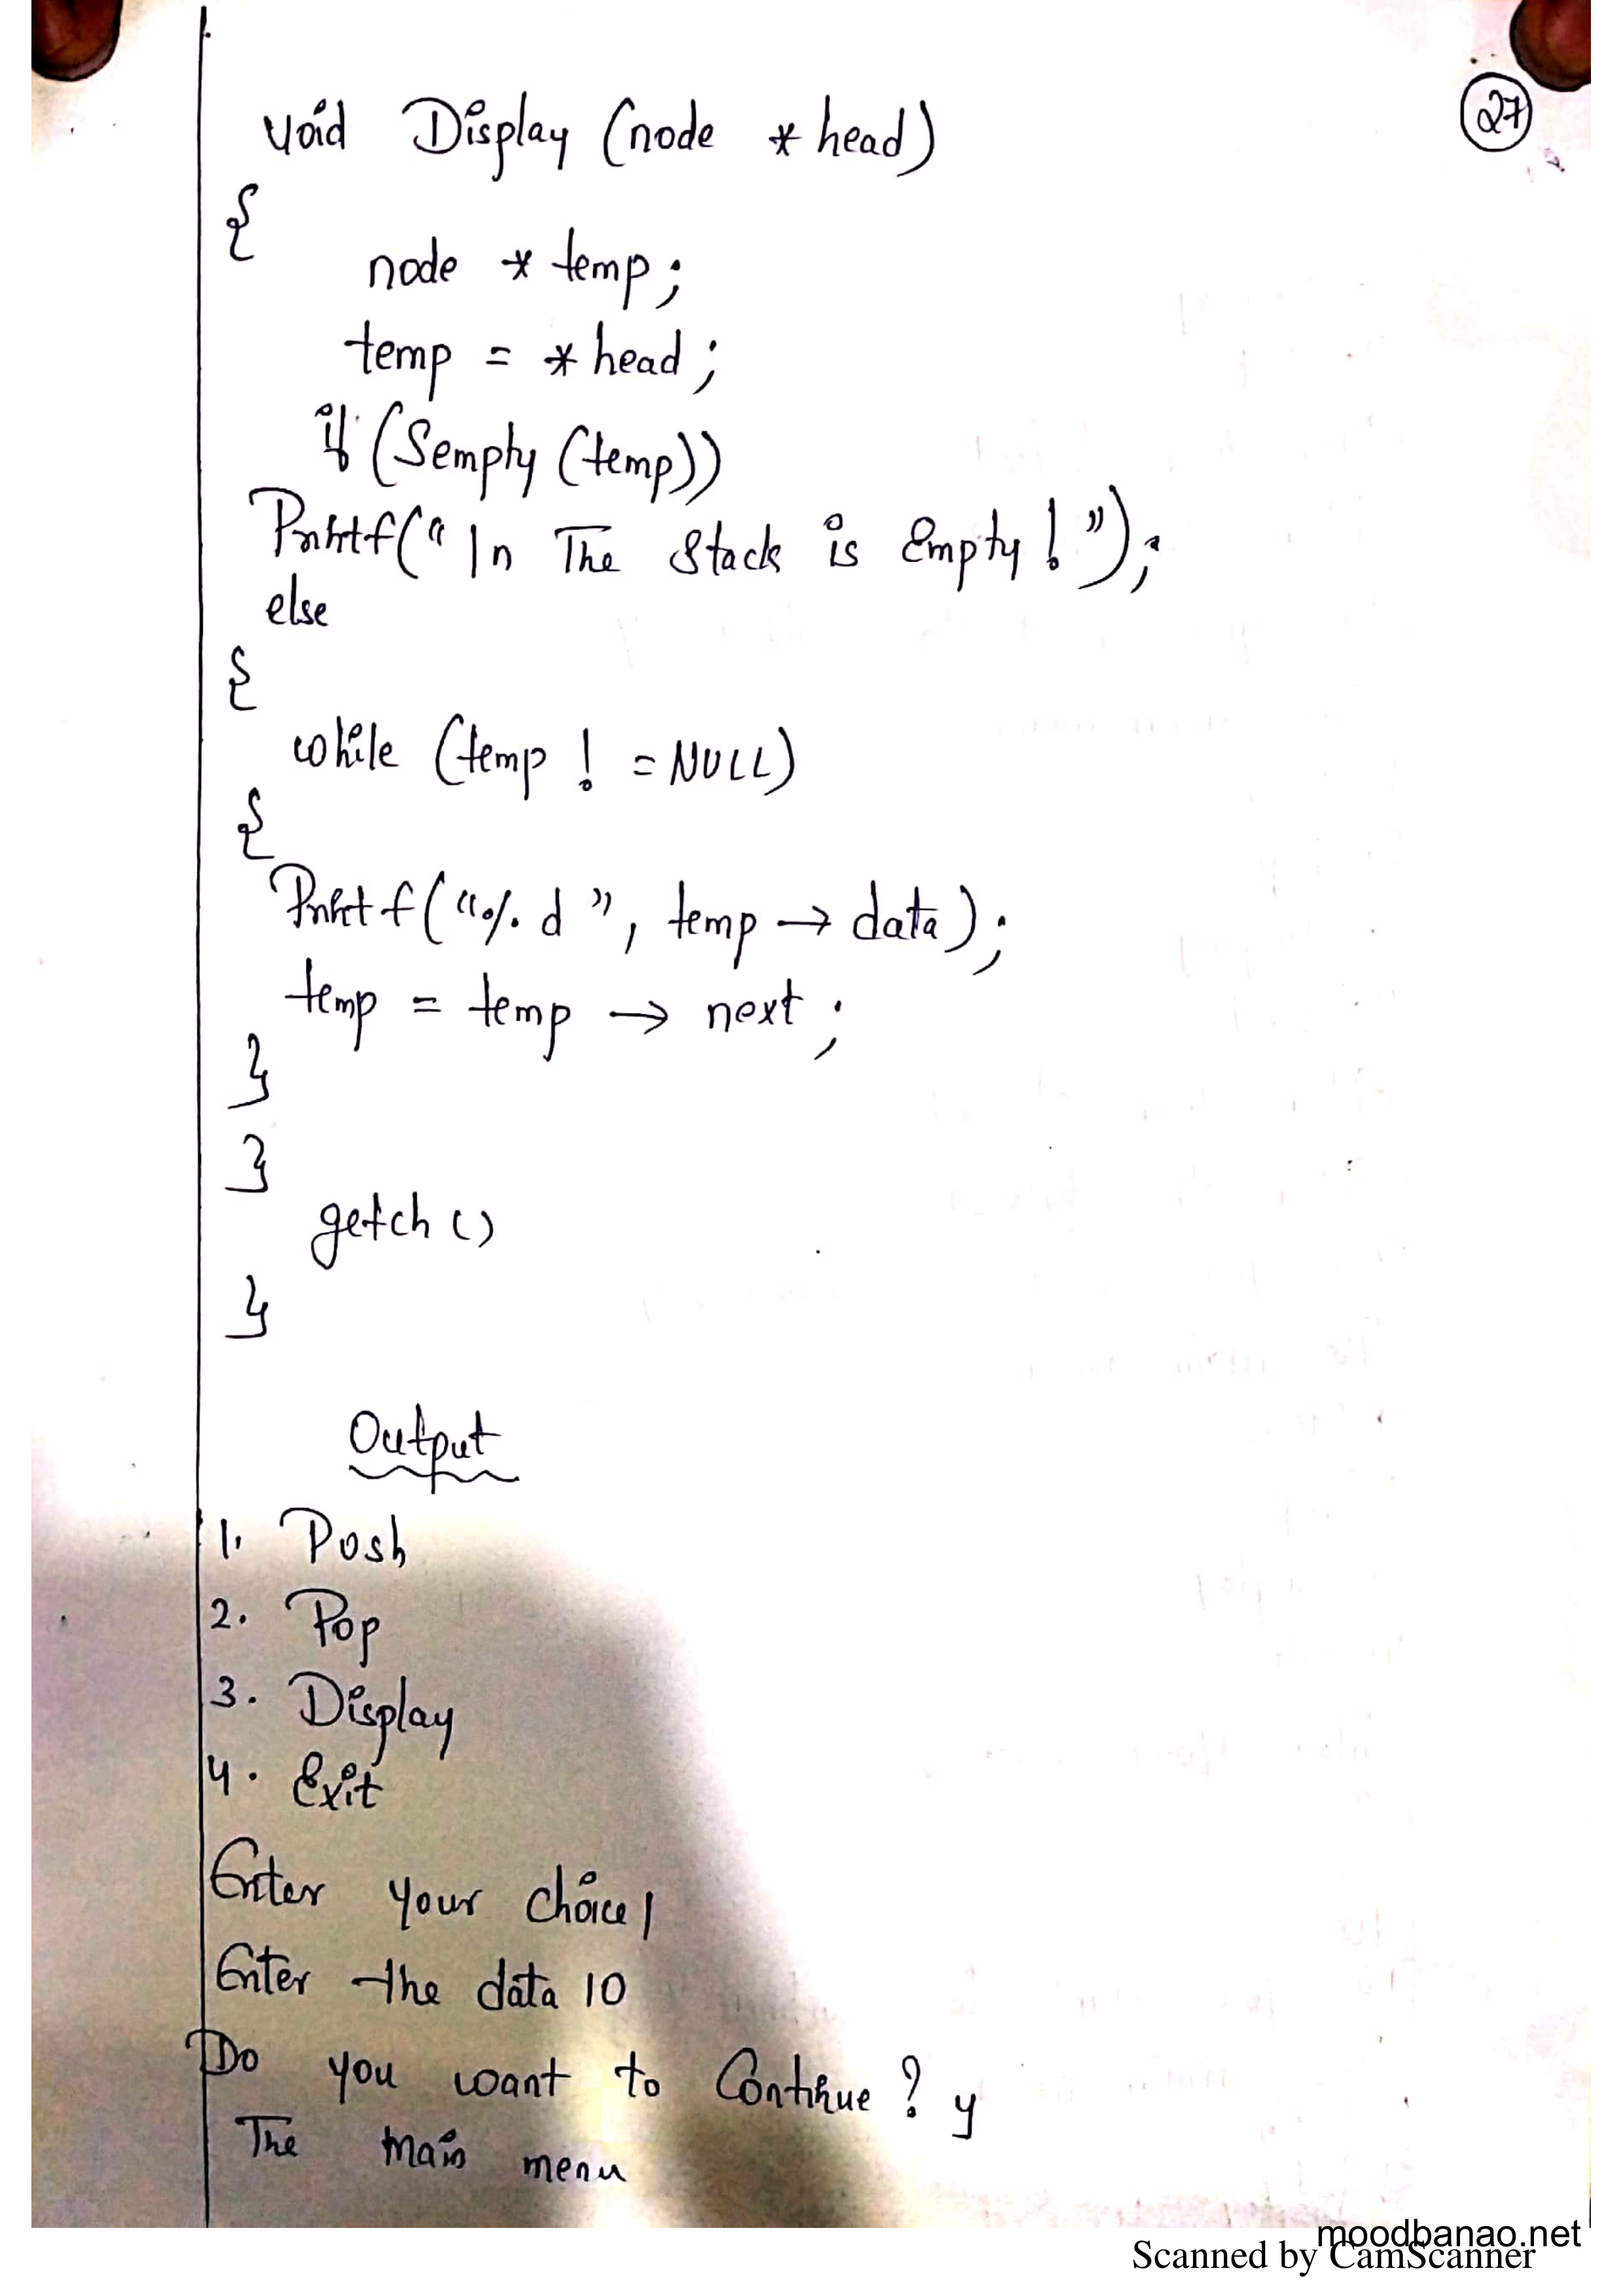 27
void Display (node * head)
{
node * temp;
temp = * head;
if (Sempty (temp))
Printf(" \n The Stack is Empty ! ");
else
{
while (temp ! = NULL)
{
Printf("% d ", temp → data);
temp = temp → next;
}
}
getch ()
}
Output
1. Push
2. Pop
3. Display
4. Exit
Enter your choice 1
Enter the data 10
Do you want to Continue ? y
The main menu
moodbanao.net
Scanned by CamScanner